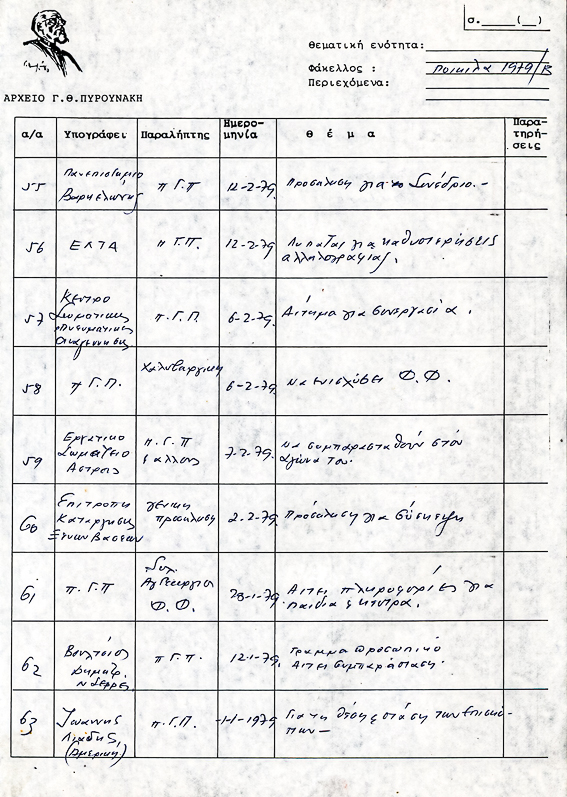 σ.____(__)
Θεματική ενότητα:
Φάκελλος : Ποικίλα 1979/Β
Περιεχόμενα:
ΑΡΧΕΙΟ Γ.Θ.ΠΥΡΟΥΝΑΚΗ
α/α Υπογράφει Παραλήπτης Ημερο-μηνία θ έ μ α Παρα-τηρή-σεις
55 Πανεπιστήμιο Βαρκελώνης π Γ.Π 12-2-79 Πρόσκληση για το Συνέδριο.-
56 ΕΛΤΑ π Γ.Π. 12-2-79 Λυπάται για καθυστερήσεις
αλληλογραφίας.
57 Κέντρο
Σωματικης
Πνευματικης
Αναγεννησης π.Γ.Π. 6-2-79 Αίτημα για συνεργασία.
58 π Γ.Π. Χαλυβουργικη 6-2-79 να ενισχύσει Φ.Φ.
59 Εργατικο
Σωματείο
π.Γ.Π
& αλλους 7-2-79 να συμπαρασταθούν στον
αγώνα του.
60 Επιτροπη
Καταργησης
Ξενων Βασεων γενικη
προσκληση 2-2-79 Πρόσκληση για σύσκεψη
61 π.Γ.Π
Φ.Φ. 23-1-79 Αιτει πληροφορίες για
παιδια & κεντρα.
62 Δημητρ.
Ν Σερρες π Γ.Π. 12-1-79 Γραμμα προσωπικό
Αιτει συμπαράσταση
63 Ιωαννης
Λιαδης
(Αμερικη) π.Γ.Π. -1-1-1979 Για τη θέση & στάση των Επισκό-
πων-